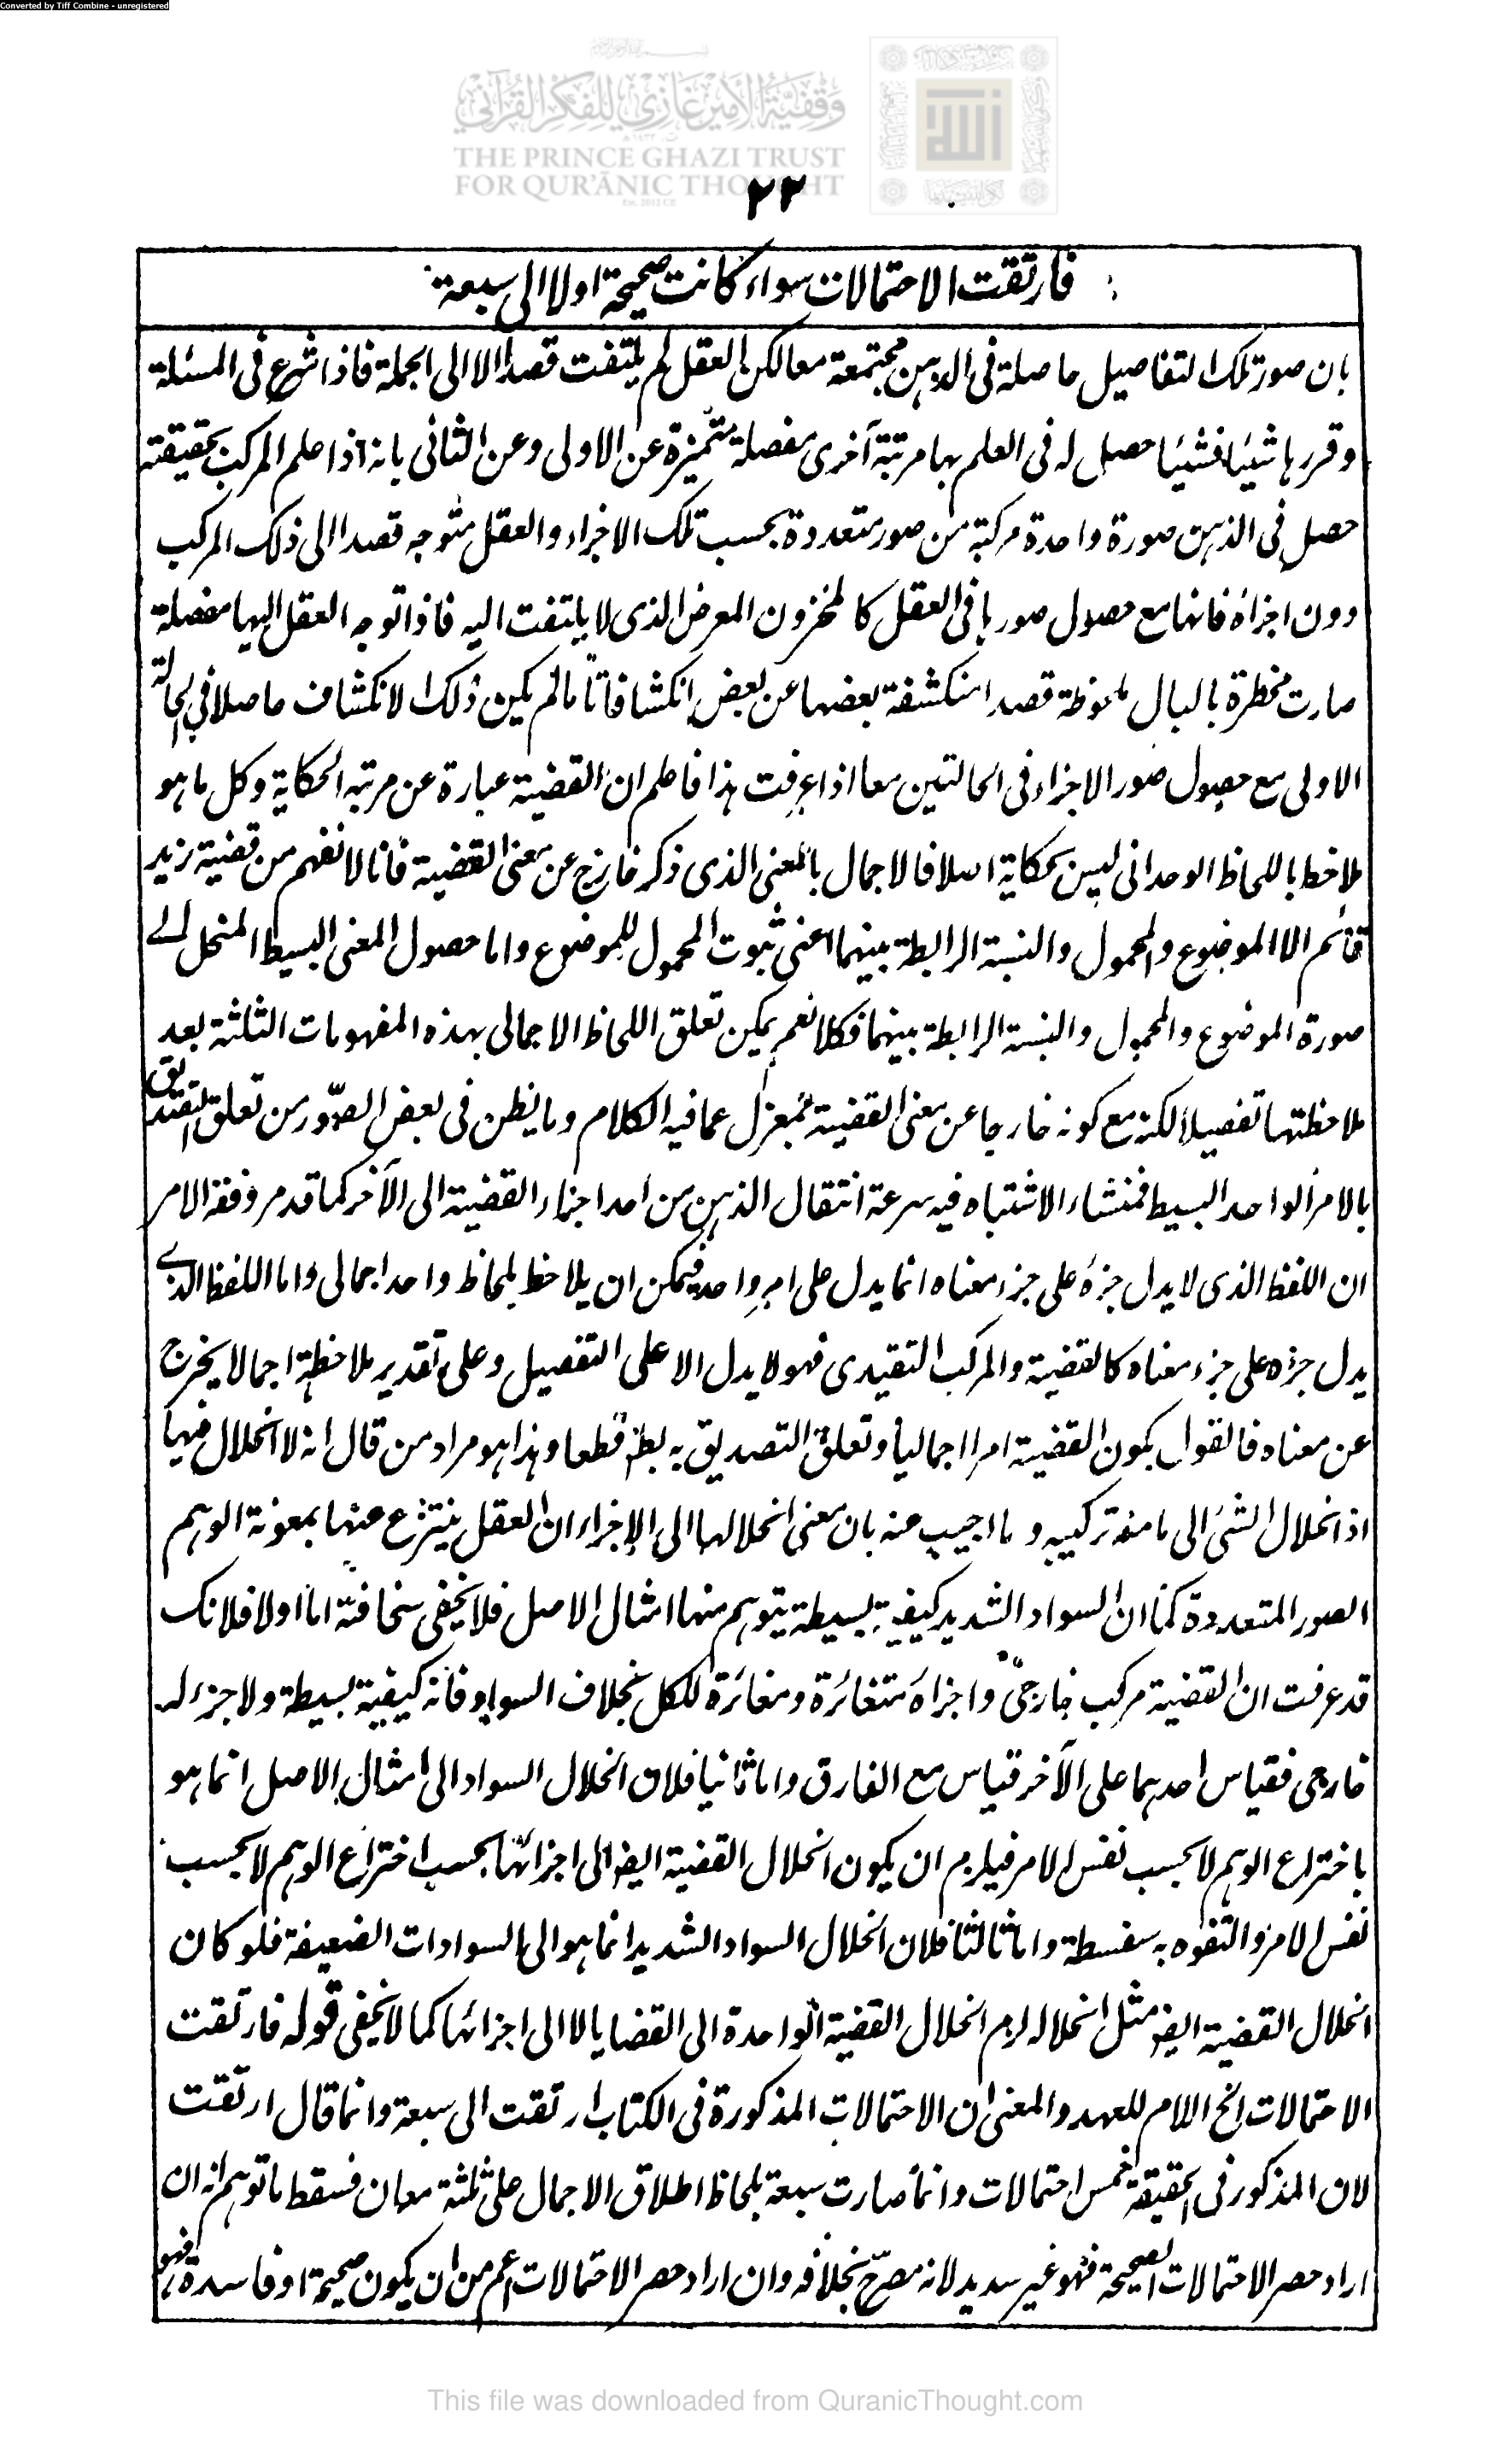 Converted by Tiff Combine - unregistered
وقفية الأمير غازي للفكر القرآني
THE PRINCE GHAZI TRUST
FOR QUR'ĀNIC THOUGHT
٢٢
فارتقت الاحتمالات سواء كانت صحيحة اولا الى سبعة
بان صور تلك التفاصيل حاصلة فى الذهن مجتمعة معا لكن العقل لم يلتفت قصدا الا الى الجملة فاذا شرع فى المسئلة
وقررها شيئا فشيئا حصل له فى العلم بها مرتبة آخرى مفصلة متميزة عن الاولى وعن الثانى بانه اذا علم المركب بحقيقته
حصل فى الذهن صورة واحدة مركبة من صور متعددة بحسب تلك الاجزاء والعقل متوجه قصدا الى ذلك المركب
دون اجزاءه فانها مع حصول صورها فى العقل كالمخزون المعرض الذى لا يلتفت اليه فاذا توجه العقل اليها مفصلة
صارت مخطرة بالبال ملحوظة قصدا منكشفة بعضها عن بعض انكشافا تاما لم يكن ذلك الانكشاف حاصلا فى الحالة
الاولى مع حصول صور الاجزاء فى الحالتين معا اذا عرفت هذا فاعلم ان القضية عبارة عن مرتبة الحكاية وكل ما هو
ملاحظ باللحاظ الوحدانى ليس بحكاية اصلا فالاجمال بالمعنى الذى ذكر خارج عن معنى القضية فانا لا نفهم من قضية زيد
قائم الا الموضوع والمحمول والنسبة الرابطة بينهما اعنى ثبوت المحمول للموضوع واما حصول المعنى البسيط المنحل الى
صورة الموضوع والمحمول والنسبة الرابطة بينهما فكلا نعم يمكن تعلق اللحاظ الاجمالى بهذه المفهومات الثلثة بعد
ملاحظتها تفصيلا لكنه مع كونه خارجا عن معنى القضية بمعزل عما فيه الكلام وما يظن فى بعض الصور من تعلق التصديق
بالامر الواحد البسيط فمنشاء الاشتباه فيه سرعة انتقال الذهن من احد اجزاء القضية الى الآخر كما قد مر وفقه الامر
ان اللفظ الذى لا يدل جزءه على جزء معناه انما يدل على امر واحد فيمكن ان يلاحظ بلحاظ واحد اجمالى واما اللفظ الذى
يدل جزءه على جزء معناه كالقضية والمركب التقييدى فهو لا يدل الا على التفصيل وعلى تقدير ملاحظته اجمالا يخرج
عن معناه فالقول بكون القضية امرا اجماليا وتعلق التصديق به بط قطعا وهذا هو مراد من قال انه لا انحلال فيها
اذ انحلال الشئ الى ما منه تركيبه وما اجيب عنه بان معنى انحلالها الى الاجزاء ان العقل ينتزع عنها بمعونة الوهم
الصور المتعددة كما ان السواد الشديد كيفية بسيطة يتوهم منها امثال الاصل فلا يخفى سخافته اما اولا فلانك
قد عرفت ان القضية مركب خارجى واجزاءه متغائرة ومغائرة للكل بخلاف السواد فانه كيفية بسيطة ولا جزء له
خارجى فقياس احدهما على الآخر قياس مع الفارق واما ثانيا فلان انحلال السواد الى امثال الاصل انما هو
باختراع الوهم لا بحسب نفس الامر فيلزم ان يكون انحلال القضية ايضا الى اجزائها بحسب اختراع الوهم لا بحسب
نفس الامر والتفوه به سفسطة واما ثالثا فلان انحلال السواد الشديد انما هو الى السوادات الضعيفة فلو كان
انحلال القضية ايضا مثل انحلاله لزم انحلال القضية الواحدة الى القضايا لا الى اجزائها كما لا يخفى قوله فارتقت
الاحتمالات الخ اللام للعهد والمعنى ان الاحتمالات المذكورة فى الكتاب ارتقت الى سبعة وانما قال ارتقت
لان المذكور فى الحقيقة خمس احتمالات وانما صارت سبعة بلحاظ اطلاق الاجمال على ثلثة معان فسقط ما توهم انه ان
اراد حصر الاحتمالات الصحيحة فهو غير سديد لانه مصرح بخلافه وان اراد حصر الاحتمالات اعم من ان يكون صحيحة او فاسدة فهو
This file was downloaded from QuranicThought.com